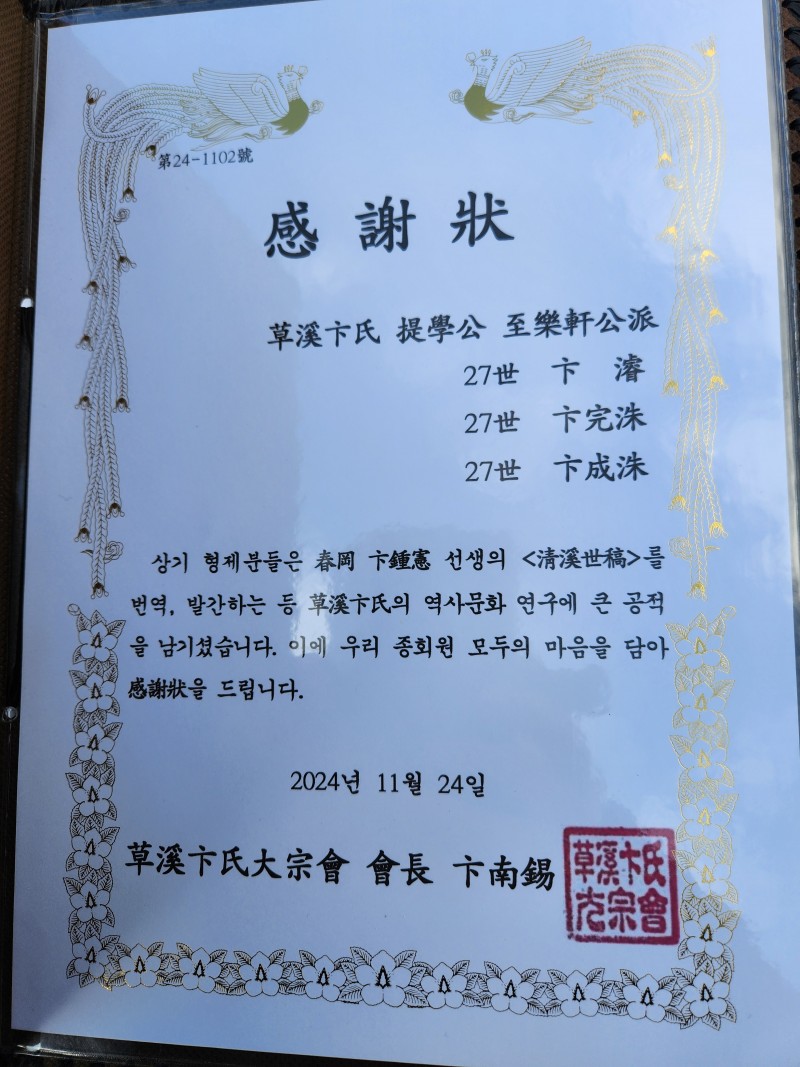 第24-1102號
感謝狀
草溪卞氏 提學公 至樂軒公派
27世 卞 濬
27世 卞完洙
27世 卞成洙
상기 형제분들은 春岡 卞鍾憲 선생의 <淸溪世稿>를
번역, 발간하는 등 草溪卞氏의 역사문화 연구에 큰 공적
을 남기셨습니다. 이에 우리 종회원 모두의 마음을 담아
感謝狀을 드립니다.
2024년 11월 24일
草溪卞氏大宗會 會長 卞南錫
草溪卞氏
大宗會